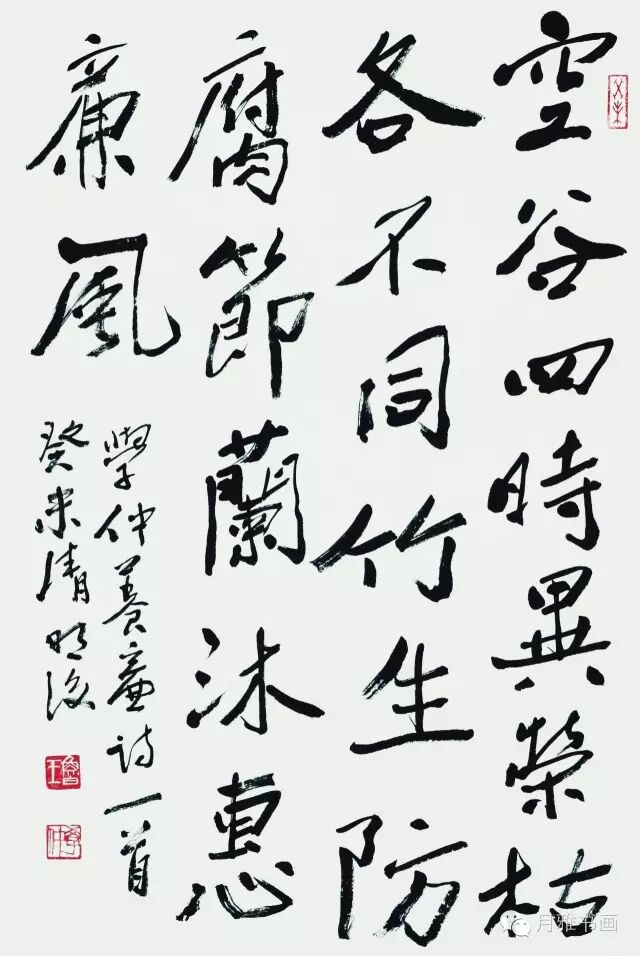 空谷四時異榮枯
各不同竹生防
腐節蘭沐惠
廉風
學仲養廉詩一首
癸未清明後
月雅书画